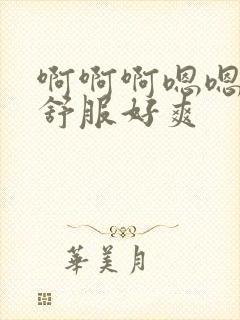 啊啊啊嗯嗯
舒服好爽
華美月